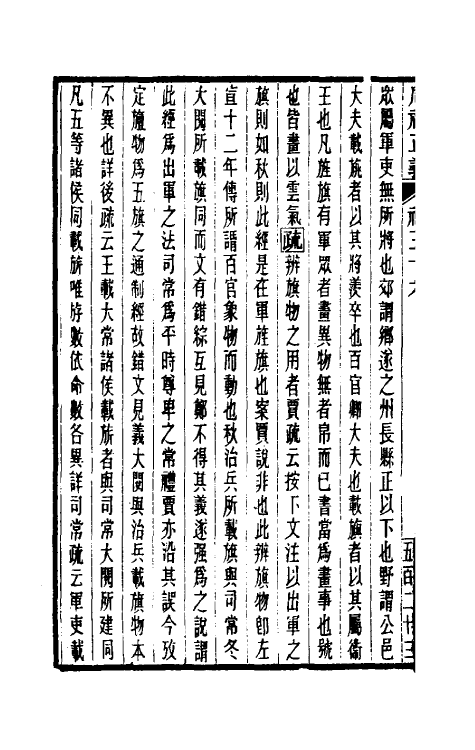 周禮正義
衆屬軍吏無所將也郊謂鄉遂之州長縣正以下也野謂公邑
大夫載旐者以其將羨卒也百官卿大夫也載旟者以其屬衞
王也凡旌旗有軍衆者畫異物無者帛而已書當爲畫事也號
也皆畫以雲氣疏辨旗物之用者賈疏云按下文注以出軍之
旗則如秋則此經是在軍旌旗也案賈說非也此辨旗物卽左
宣十二年傳所謂百官象物而動也秋治兵所載旗與司常冬
大閱所載旗同而文有錯綜互見鄭不得其義遂强爲之說謂
此經爲出軍之法司常爲平時尊卑之常禮賈亦沿其誤今攷
定旟物爲五旗之通制經故錯文見義大閱與治兵載旗物本
不異也詳後疏云王載大常諸侯載旂者與司常大閱所建同
凡五等諸侯同載旂唯斿數依命數各異詳司常疏云軍吏載